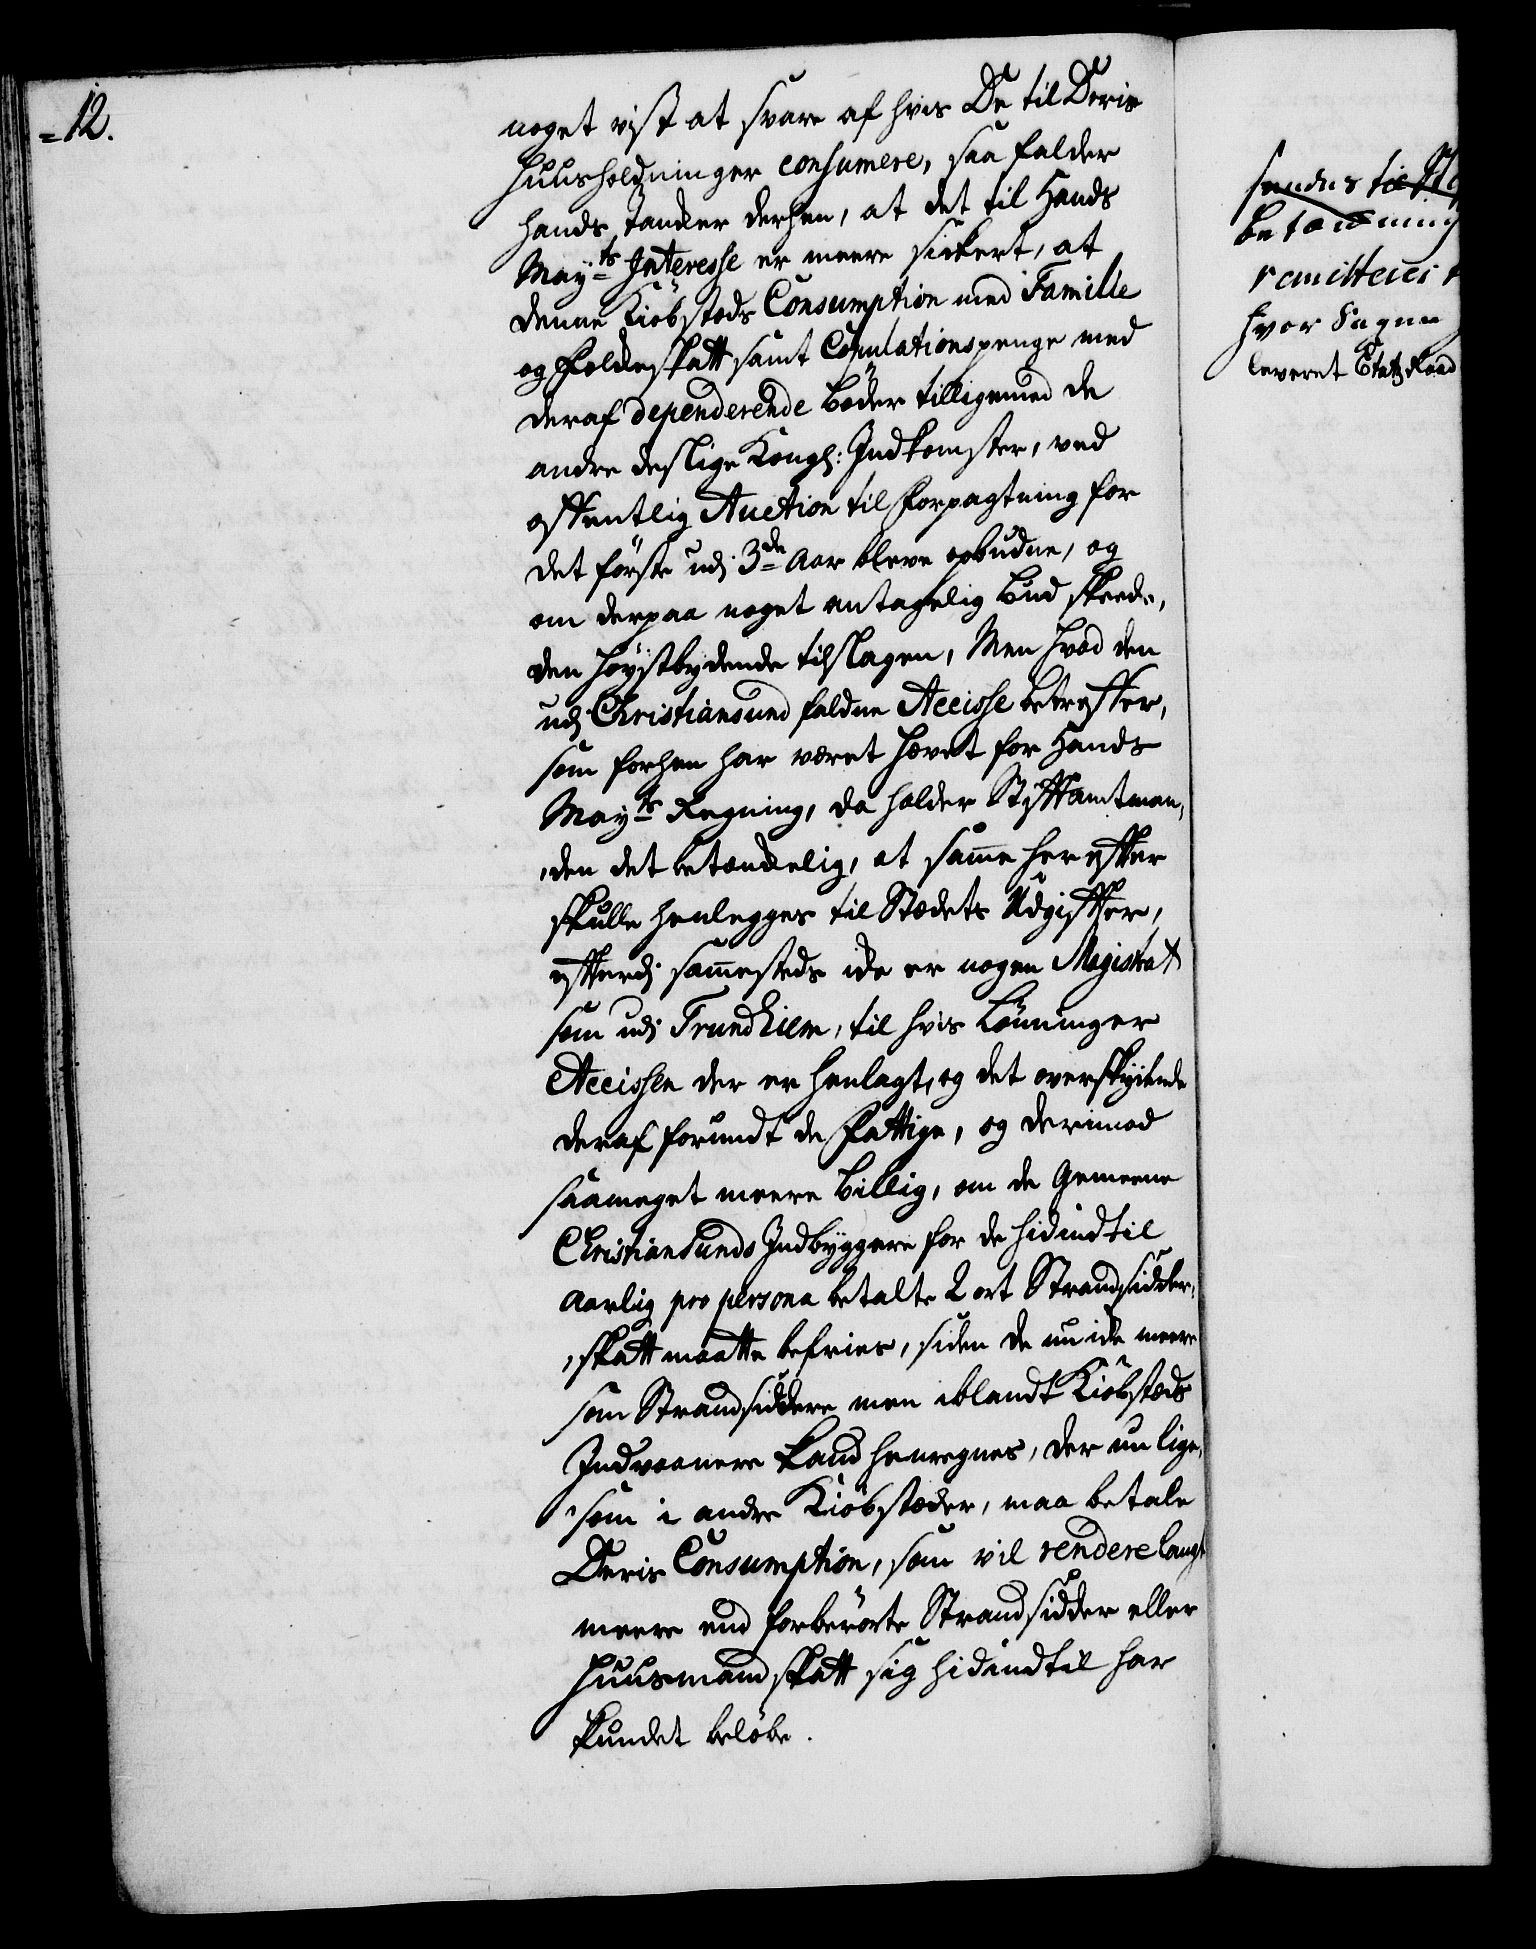 =12.
noget vist at svare af hvis De til Deris
Huusholdninger consumere, saa falder
hands Tanker derhen, at det til Hands
Mayts Interesse er meere sickert, at
denne Kiöbstæds Consumption med Familie
og Folckeskatt samt Copulationspenge med
deraf dependerende bøder tilligemed de
andre deslige Kongl: Indkomster, ved
offentlig Auction til Forpagtning for
det förste udj 3de Aar bleve opbudne, og
om derpaa noget antagelig bud skeede,
den höystbydende tilslagen, Men hvad den
udj Christiansund faldne Accisse betreffer,
som forhen har været hævet for Hands
Mayts Regning, da holder Stifftamtman,
,den det betænckelig, at samme herefter
skulle henlegges til Stædets Udgiffter,
effterdj sammesteds icke er nogen Magistrat
som udj Trundhiem, til hvis Lönninger
Accissen der er henlagt, og det overskydende
deraf forundt de Fattige, og derimod
saameget meere billig, om de Gemeene
Christiansunds Indbyggere for de hidindtil
aarlig pro persona betalte 2 ort Strandsidder,
,skatt maatte befries, siden de nu icke meere
som Strandsiddere men iblandt Kiöbstæds
Indvaanere kand henregnes, der nu lige,
,som i andre Kiöbstæder, maa betale
Deris Consumption, som vil rendere langt
meere end forberörte Strandsidder eller
Huusmandskatt sig hidindtil har
kundet belöbe.
sendes til
betænckning
remitteres
hvor Sagen
leveret Etats Raad